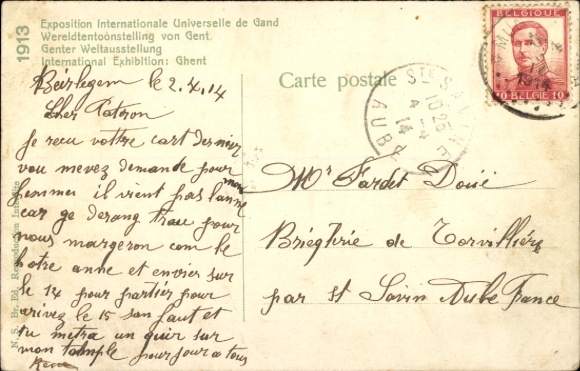 1913
Exposition Internationale Universelle de Gand
Wereldtentoonstelling von Gent.
Genter Weltausstellung
International Exhibition: Ghent
Carte postale
BELGIQUE
10 BELGIË 10
STE SAVINE
AUBE
10 25
4 - 4
14
Beirlegem le 2.4.14
Cher Patron
Je recu vottre cart dernier
vou mevez demande pour mon
femmer il vient pas l'anne
car ge derang trau pour
nous margeron com le
hotre anne et envier sur
le 14 pour partier pour
arivez le 15 san faut et
tu metra un quir sur
mon pour jour a tous
René
Mr Fardet Doué
Briegterie de Torvilliére
par st Savin Aube France
N. S. Br. Ed. Reproduction Interdite